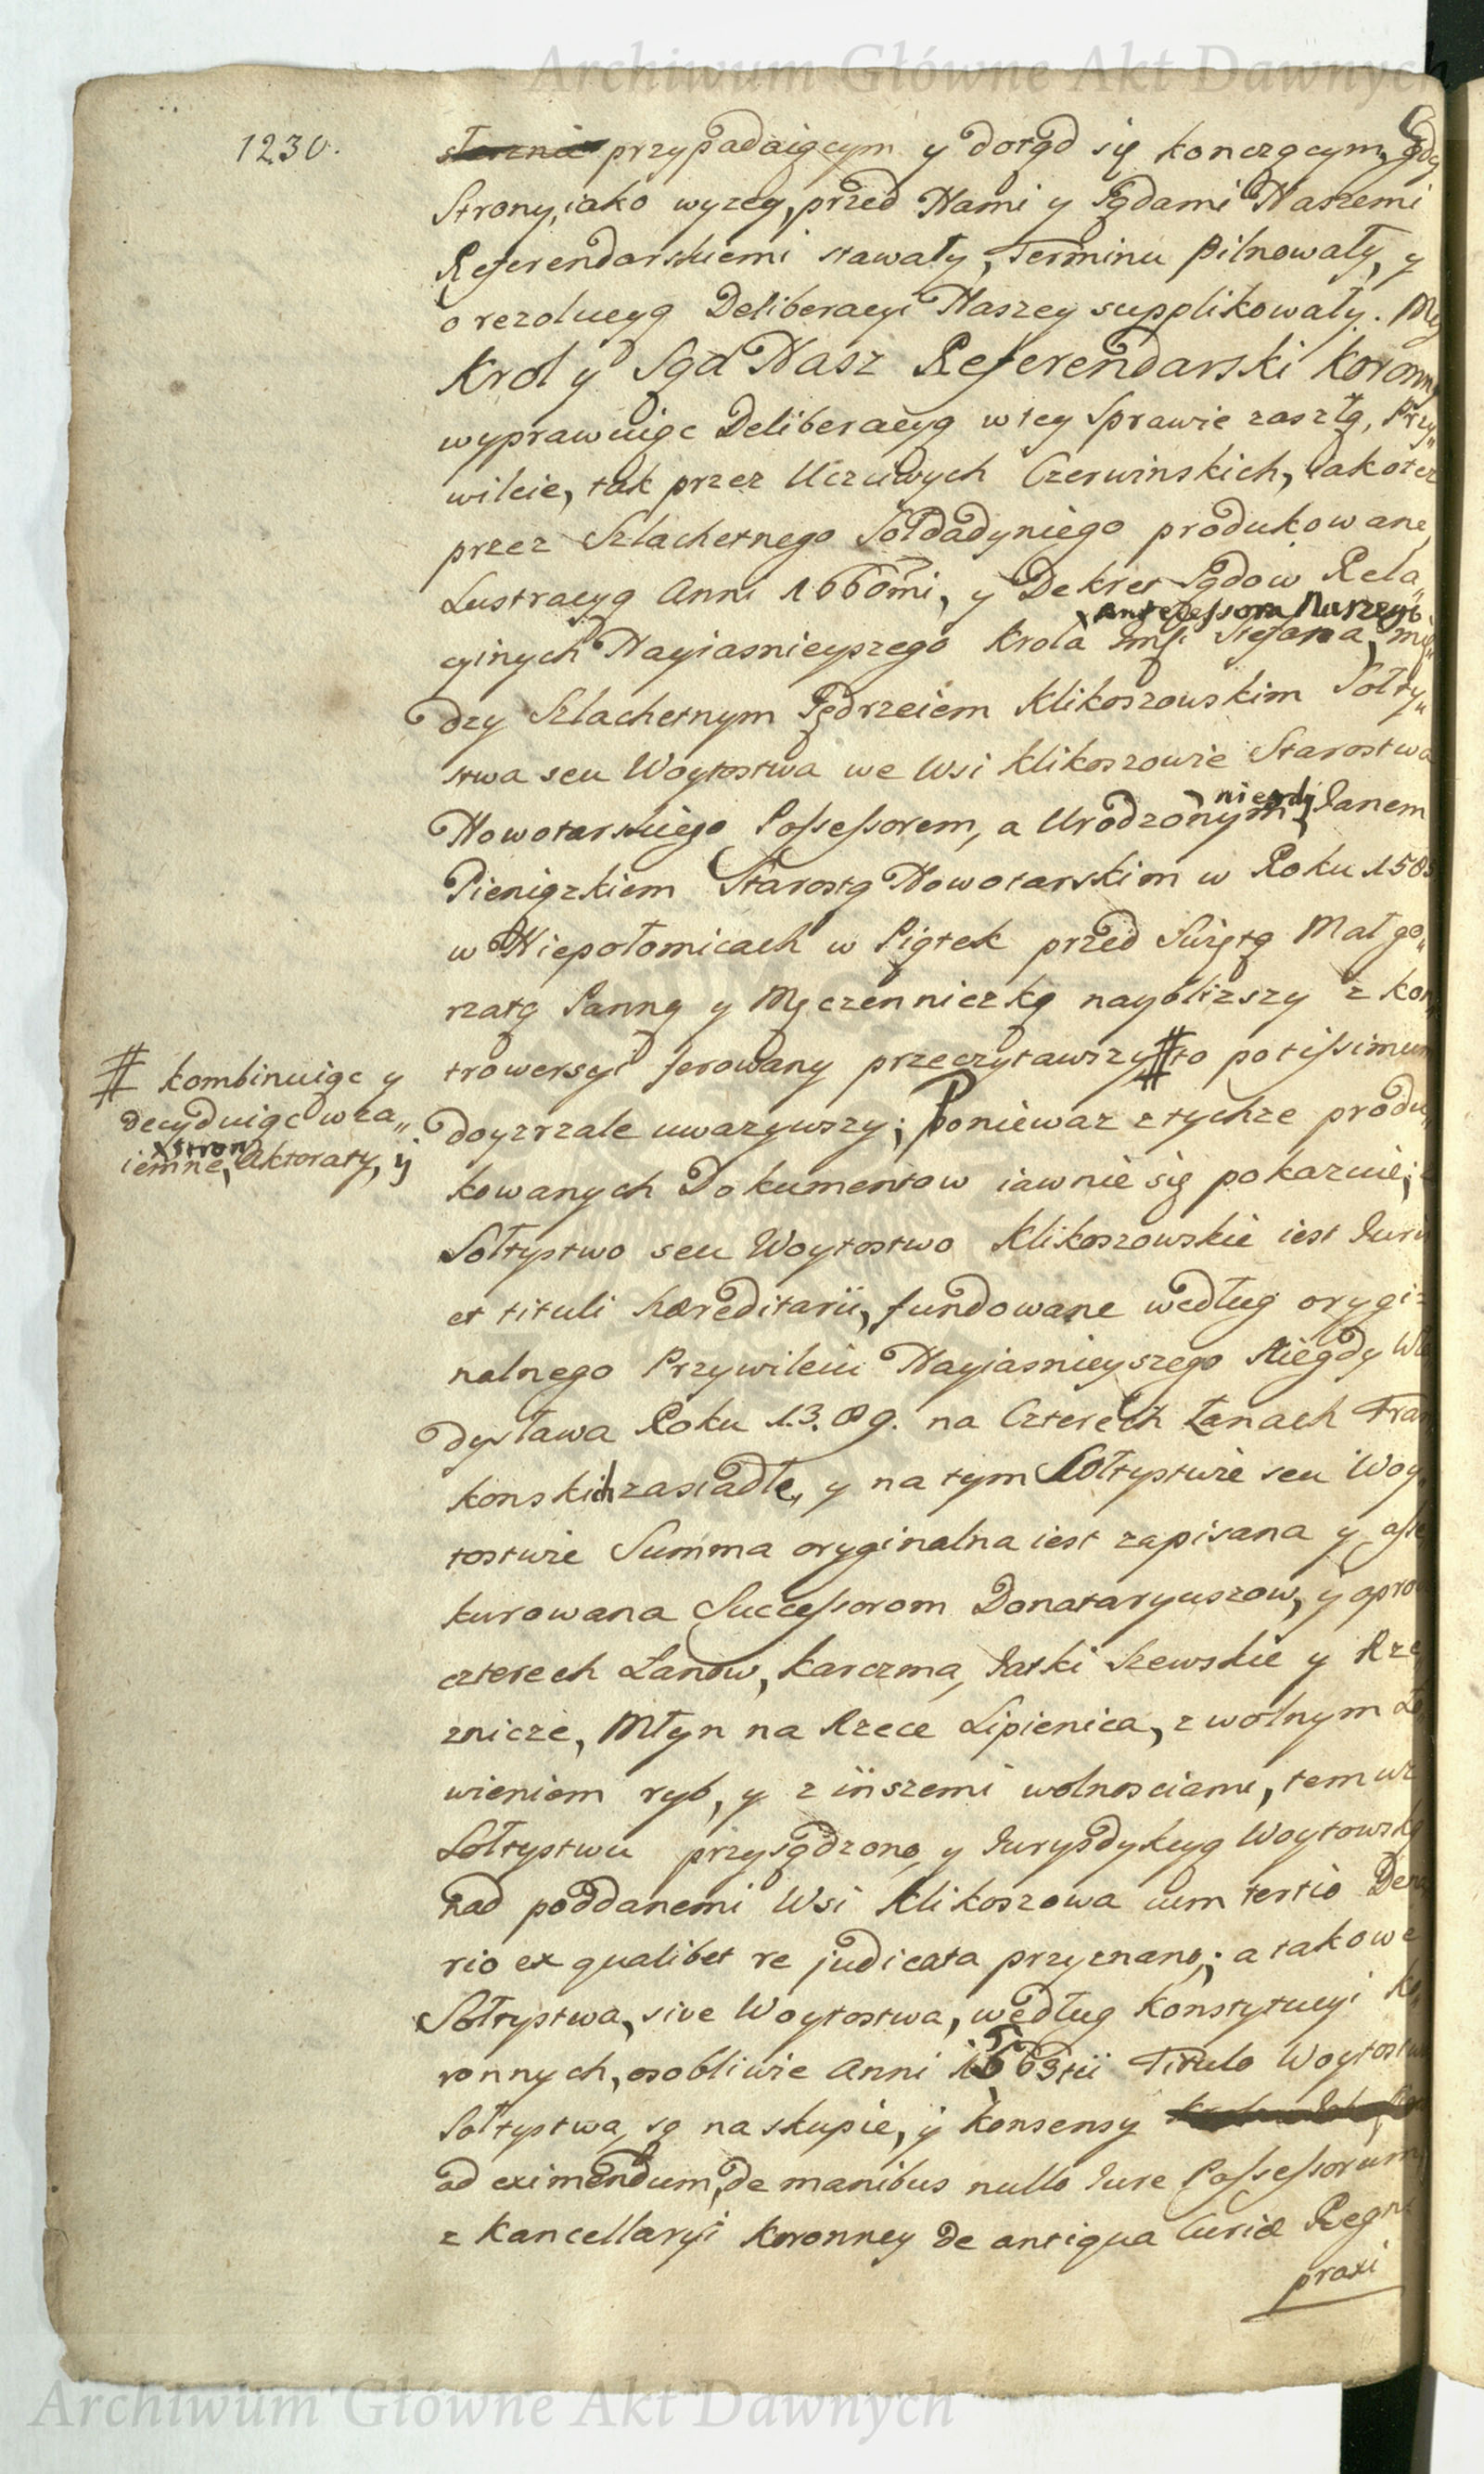 Archiwum Główne Akt Dawnych
1230.
przypadaiącym y dotąd się konczącym, gdy
Strony, iako wyzey, przed Nami y Sądami Naszemi
Referendarskiemi stawały, Terminu pilnowały, y
o rezolucyą Deliberacyi Naszey supplikowały. My
Krol y Sąd Nasz Referendarski Koronny
wyprawuiąc Deliberacyą w tey Sprawie zaszłą, Przy„
wileie, tak przez Uczciwych Czerwinskich, Jako też
przez Szlachetnego Sołdadyniego produkowane,
Lustracyą Anni 1660mi, y Dekret Sądow Rela„
x Antecessora Naszego
cyinych Nayiasnieyszego Krola Jmsci Stefana, mię„
dzy Szlachetnym Jędrzeiem Klikoszowskim Sołty„
stwa seu Woytostwa we Wsi Klikoszowie Starostwa
niegdy
Nowotarskiego Possessorem, a Urodzonym Janem
Pieniązkiem Starostą Nowotarskim w Roku 158
w Niepołomicach w Piątek przed Swiętą Małgo„
rzatą Panną y Męczenniczką naybliższy z kon„
trowersyi ferowany przeczytawszy # to potissimum
# kombinuiąc y
decyduiąc wza„
x stron
iemne, Aktoraty, ÿ
doyzrzale uwazywszy; Poniewaz z tychze produ„
kowanych Dokumentow iawnie się pokazuie;
Sołtystwo seu Woytostwo Klikoszowskie iest Juris
et tituli hæreditarii, fundowane według orygi„
nalnego Przywileiu Nayjasnieyszego Niegdy Wła
dysława Roku 1389. na Czterech Łanach Fran
konskich zasiadłe, y na tym Sołtystwie seu Woy„
tostwie Summa oryginalna iest zapisana y asse
kurowana Successorom Donataryuszow, y oprocz
czterech Łanow, Karczma, Jatki Szewskie y Rze
znicze, Młyn na Rzece Lipienica, z wolnym Ło
wieniem ryb, y z iinszemi wolnosciami, temuz
Sołtystwu przysądzono, y Jurysdykcyą Woytowską
nad poddanemi Wsi Klikoszowa cum tertio Dena
rio ex qualibet re judicata przyznano; a takowe
Sołtystwa, sive Woytostwa, według Konstytucyi Ko„
ronnych, osobliwie Anni 1563tii Titulo Woytostwa
Sołtystwa, są na skupie, ÿ konsensy
ad eximendum de manibus nullo Jure Possessorum,
z Kancellaryi Koronney de antiqua Curiæ Regni
praxi
Archiwum Główne Akt Dawnych